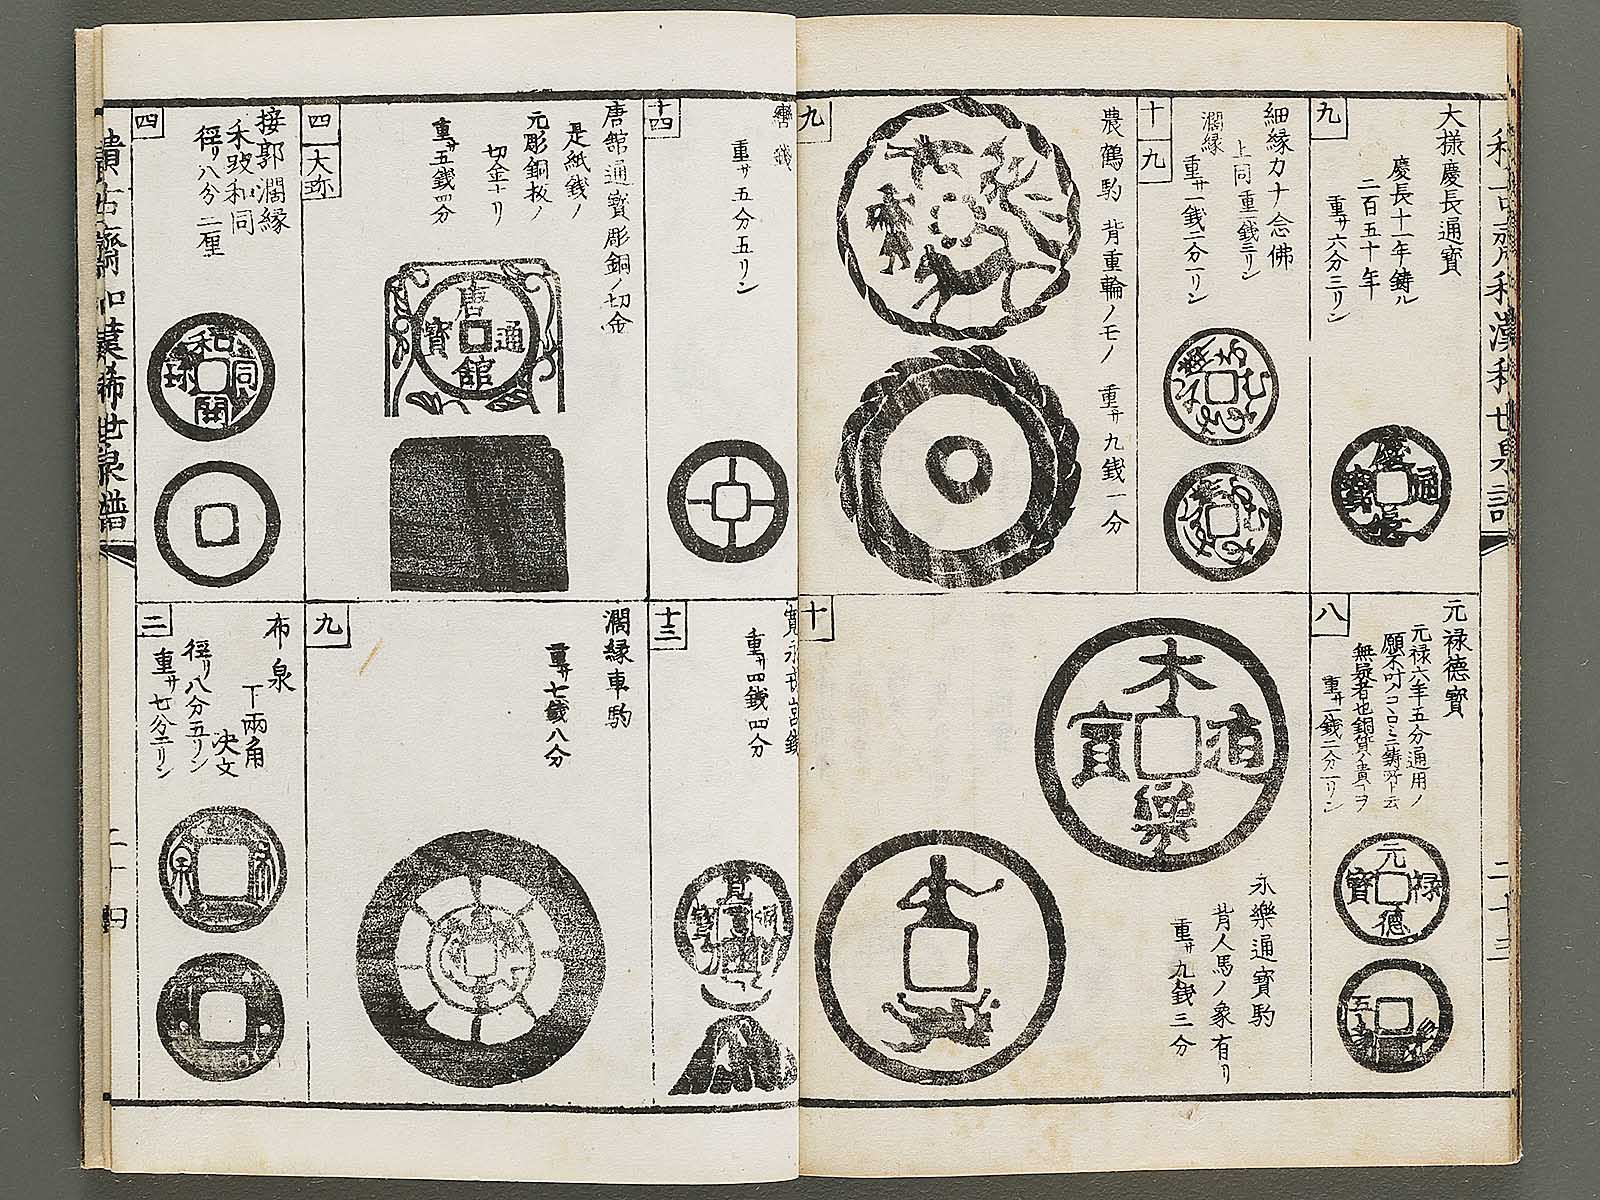 九
大様慶長通寳
慶長十一年鋳ル
二百五十年
重サ六分三リン
慶長通寳
十九
細縁カナ念佛
上同重一銭三リン
濶縁
重サ一銭二分一リン
九
農鶴駒 背重輪ノモノ 重サ九銭一分
八
元禄德寳
元禄六年五分通用ノ
無疑者也銅貨ノ貴キヲ
重サ一銭二分一リン
元禄德寳
十
永樂通寳駒
背人馬ノ象有リ
重サ九銭三分
二十三
十四
重サ五分五リン
四 大珎
唐館通寳彫銅ノ切金
是紙銭ノ
元彫銅板ノ
切金ナリ
重サ五銭四分
唐館通寳
四
接郭濶縁
禾跛和同
徑リ八分二厘
和同開珎
十三
重サ四銭四分
九
濶縁車駒
重サ七銭八分
二
布泉
下兩角
決文
徑リ八分五リン
重サ七分二リン
布泉
古齋和漢稀世泉譜
二十四